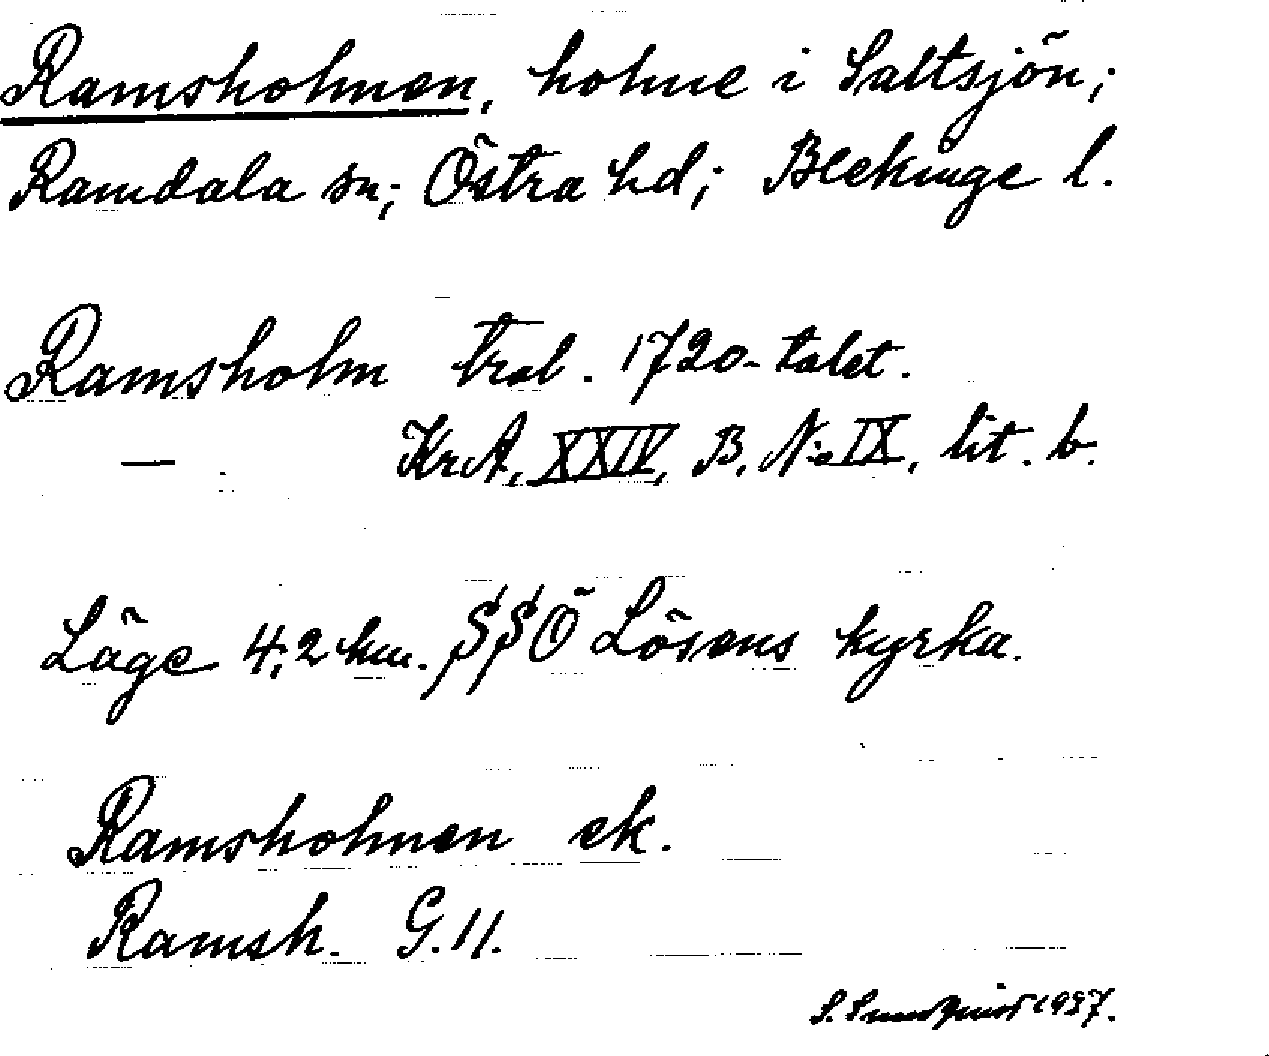 Ramsholmen, holme i Saltsjön;
Ramdala sn; Östra hd; Blekinge l.
Ramsholm trol. 1720-talet.
— KrA, XXIV, B. No IX, lit. b.
Läge 4,2 km. SSÖ Lösens kyrka.
Ramsholmen ek.
Ramsh. G. 11.
S. 1937.